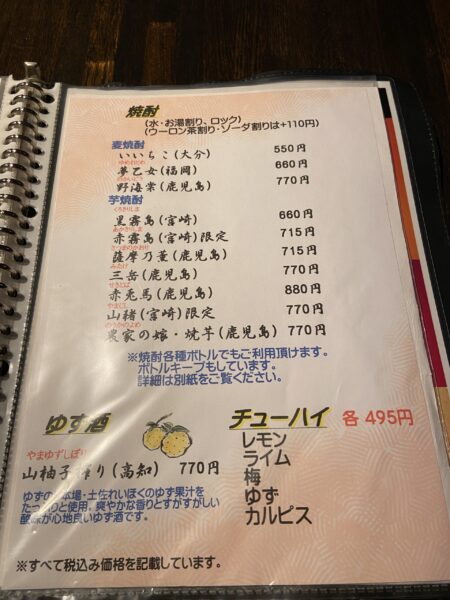 焼酎
(水・お湯割り、ロック)
(ウーロン茶割り・ソーダ割りは+110円)
麦焼酎
いいちこ(大分) 550円
夢乙女(福岡) 660円
野海棠(鹿児島) 770円
芋焼酎
くろきりしま
黒霧島(宮崎) 660円
あかきりしま
赤霧島(宮崎)限定 715円
さつまのかおり
薩摩乃薫(鹿児島) 715円
みたけ
三岳(鹿児島) 770円
せきとば
赤兎馬(鹿児島) 880円
山猪(宮崎)限定 770円
農家の嫁・焼芋(鹿児島) 770円
※焼酎各種ボトルでもご利用頂けます。
ボトルキープもしています。
詳細は別紙をご覧ください。
ゆず酒
やまゆずしぼり
山柚子搾り(高知) 770円
ゆずの本場・土佐れいほくのゆず果汁を
たっぷりと使用。爽やかな香りとすがすがしい
酸味が心地良いゆず酒です。
チューハイ 各 495円
レモン
ライム
梅
ゆず
カルピス
※すべて税込み価格を記載しています。